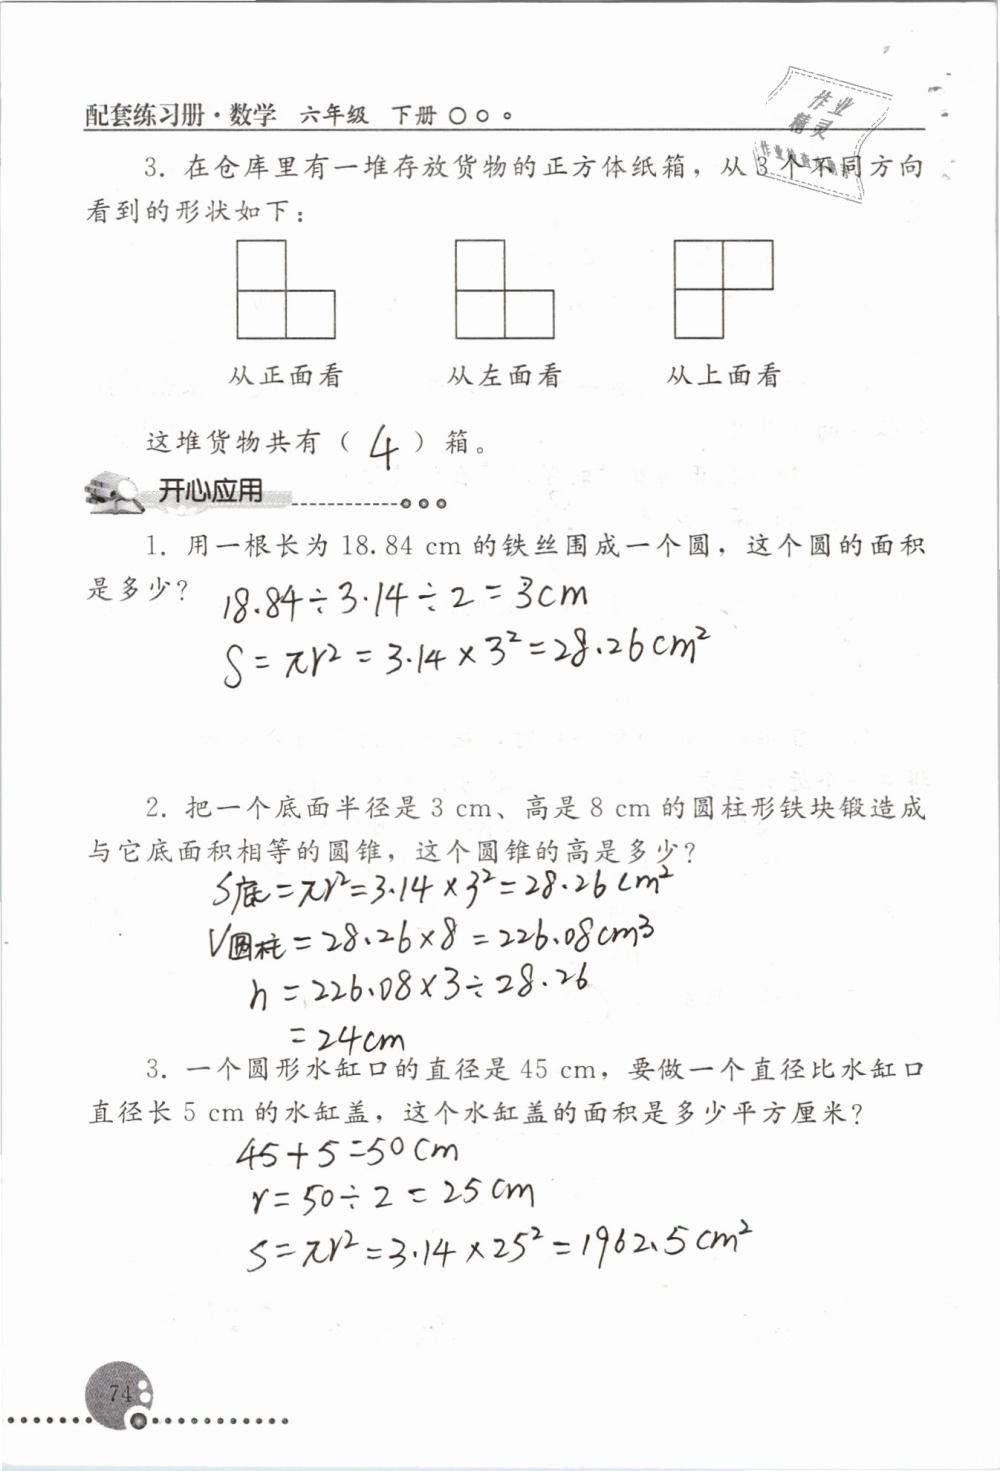 配套练习册·数学 六年级 下册
作业
精灵
3. 在仓库里有一堆存放货物的正方体纸箱，从3个不同方向
看到的形状如下：
从正面看 从左面看 从上面看
这堆货物共有（ 4 ）箱。
开心应用
1. 用一根长为 18.84 cm 的铁丝围成一个圆，这个圆的面积
是多少？
18.84÷3.14÷2=3cm
S=πr²=3.14×3²=28.26cm²
2. 把一个底面半径是 3 cm、高是 8 cm 的圆柱形铁块锻造成
与它底面积相等的圆锥，这个圆锥的高是多少？
S底=πr²=3.14×3²=28.26cm²
V圆柱=28.26×8=226.08cm³
h=226.08×3÷28.26
=24cm
3. 一个圆形水缸口的直径是 45 cm，要做一个直径比水缸口
直径长 5 cm 的水缸盖，这个水缸盖的面积是多少平方厘米？
45+5=50cm
r=50÷2=25cm
S=πr²=3.14×25²=1962.5cm²
74